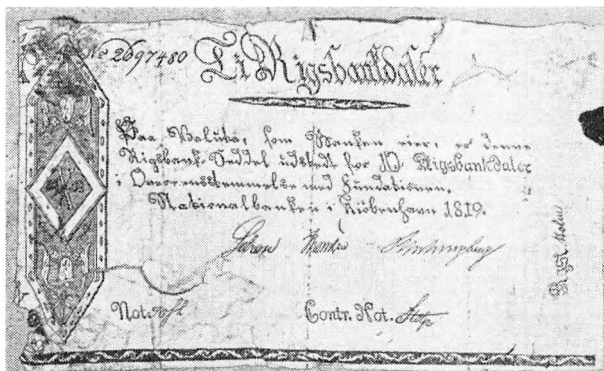 No 2697480
Ti Rigsbankdaler
Paa Valuta, som Banken eier, er denne
Rigsbank-Seddel udstedt for 10 Rigsbankdaler
i Overensstemmelse med Fundationen.
Nationalbanken i Kiöbenhavn 1819.
Not.
Contr. Not.